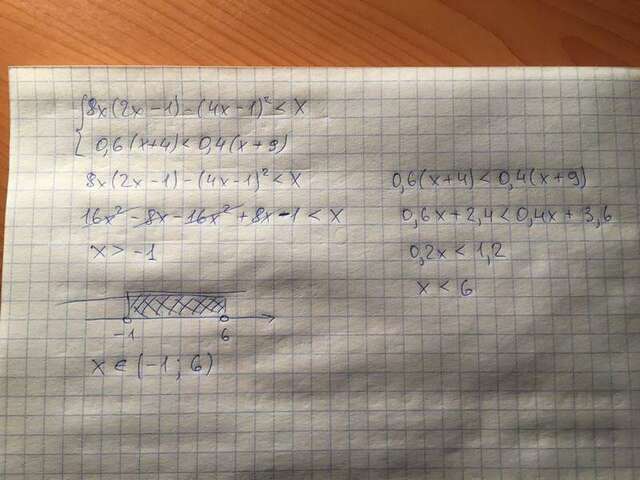 8x(2x-1)-(4x-1)²<x
0,6(x+4)<0,4(x+9)
8x(2x-1)-(4x-1)²<x
16x²-8x-16x²+8x-1<x
x>-1
0,6(x+4)<0,4(x+9)
0,6x+2,4<0,4x+3,6
0,2x<1,2
x<6
-1 6
x∈(-1;6)